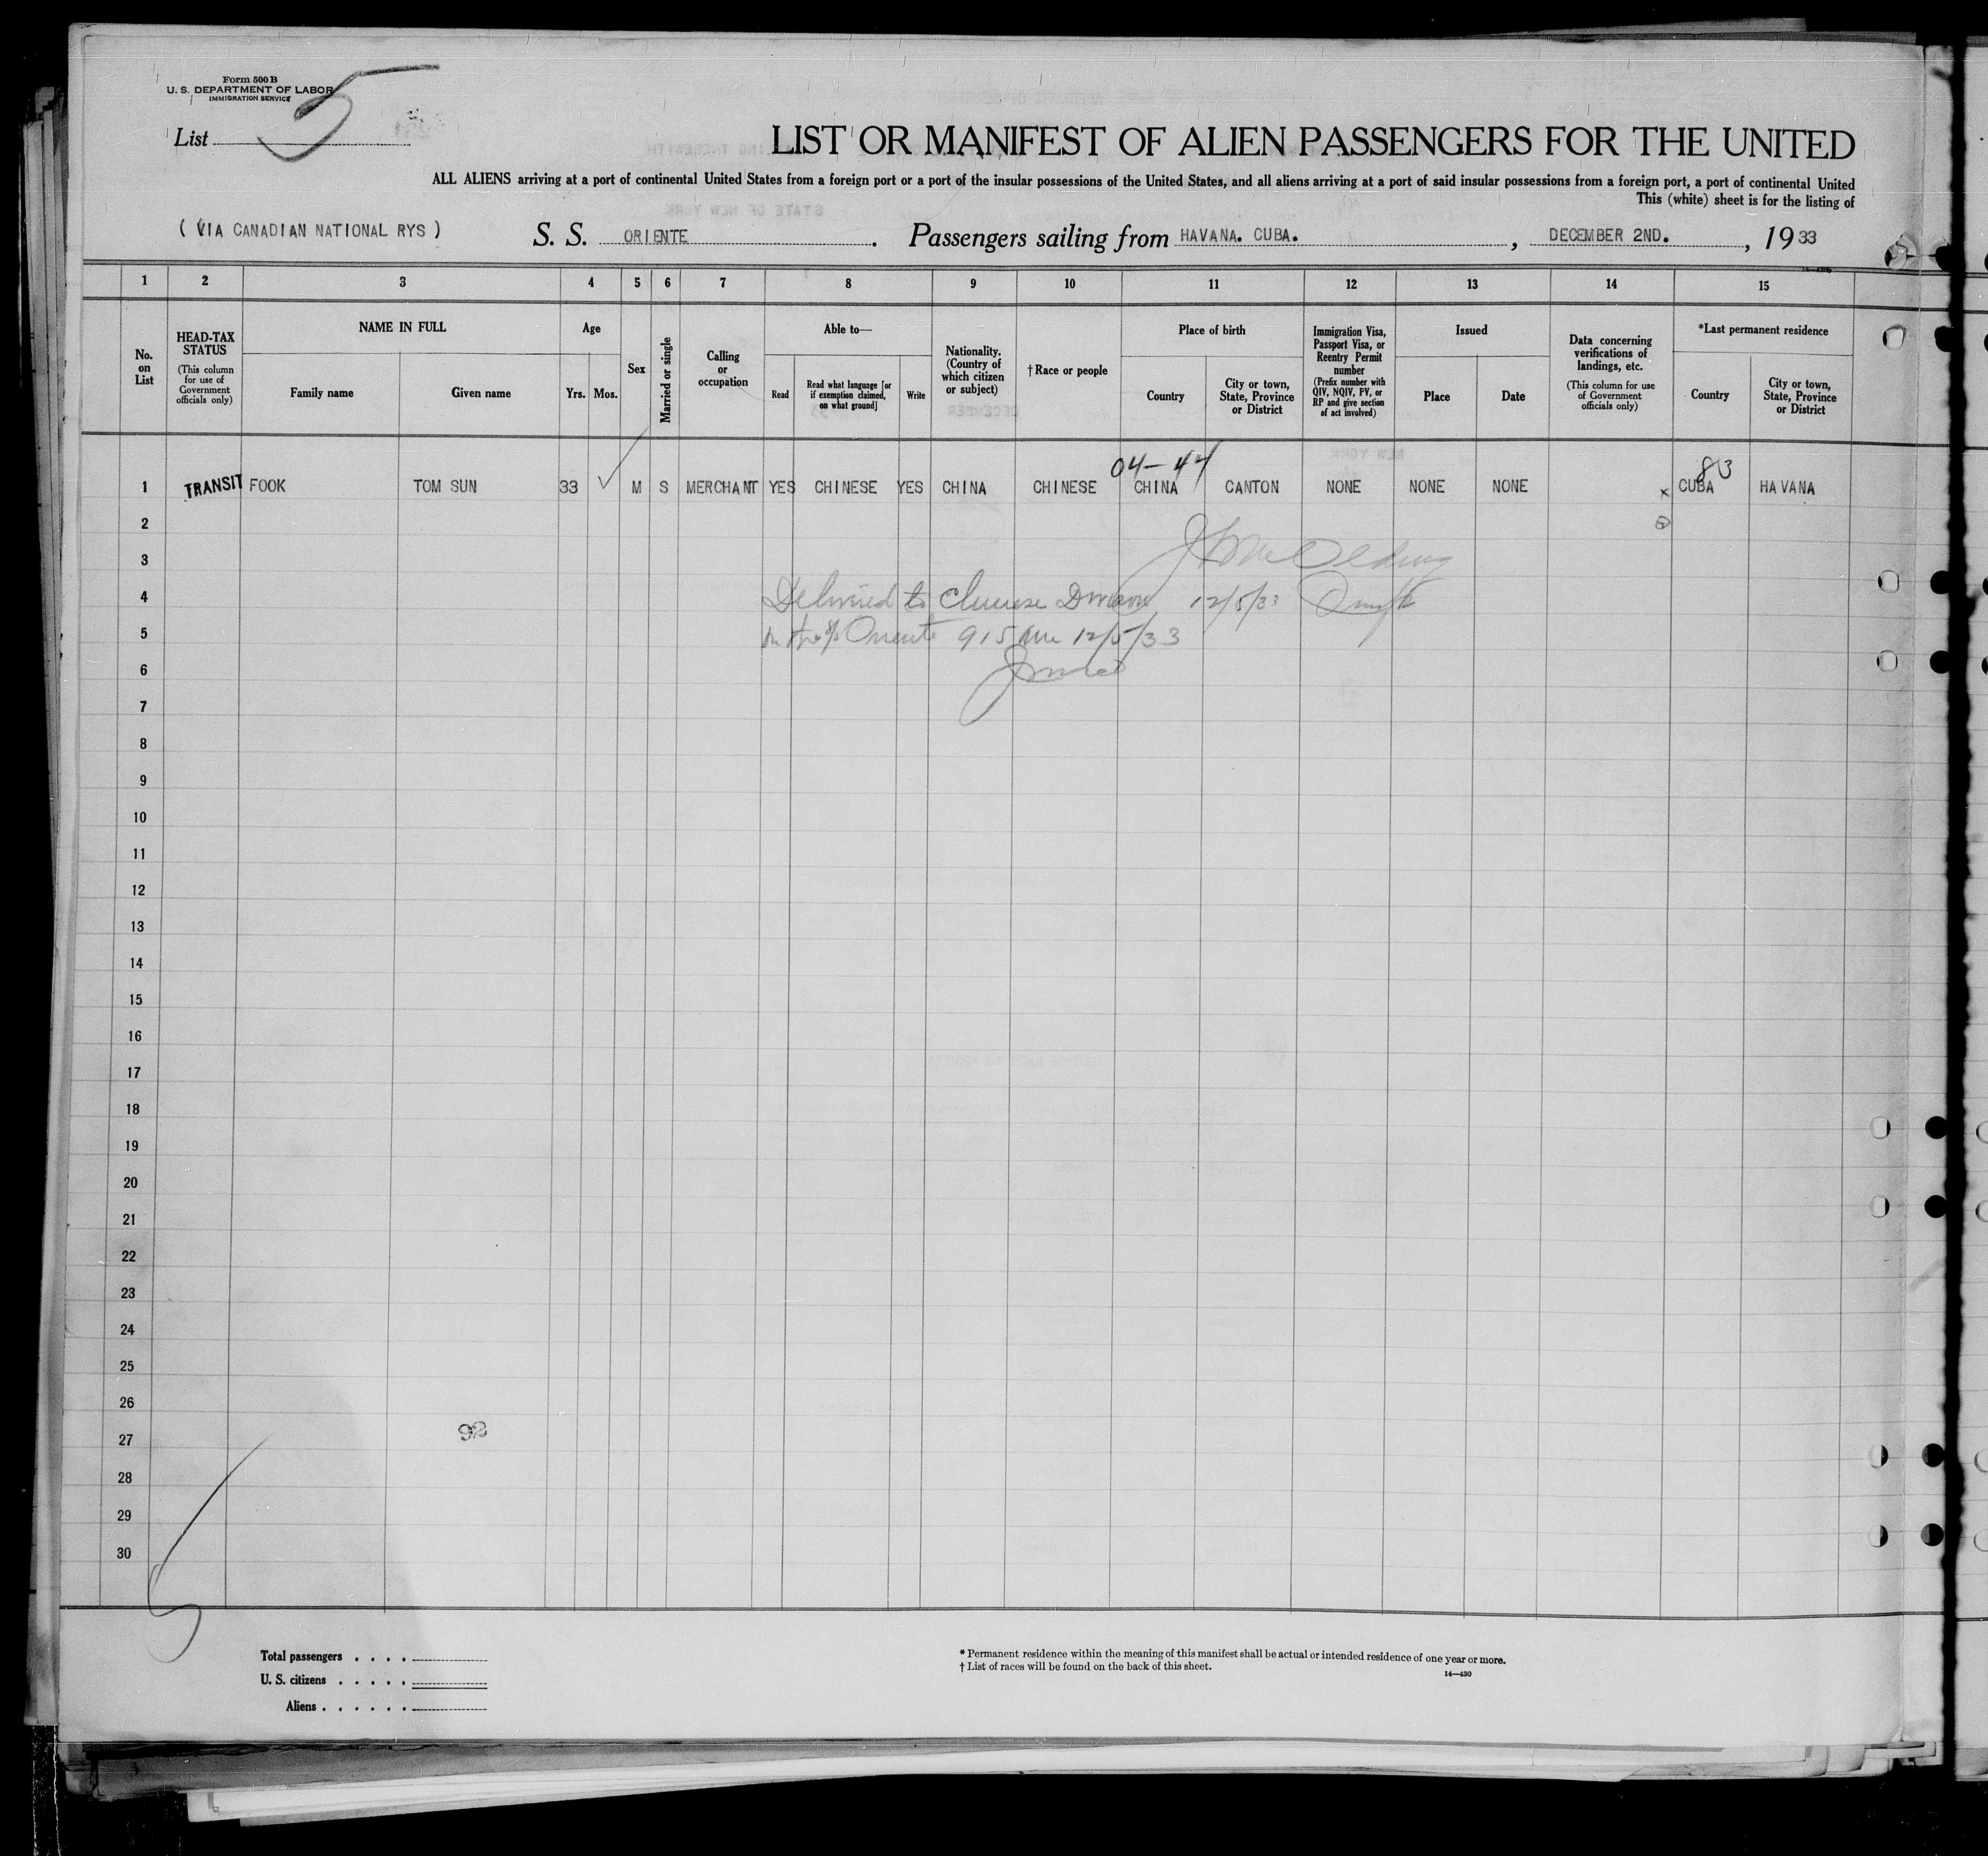 Form 500 B
U. S. DEPARTMENT OF LABOR
IMMIGRATION SERVICE
List 5
LIST OR MANIFEST OF ALIEN PASSENGERS FOR THE UNITED
ALL ALIENS arriving at a port of continental United States from a foreign port or a port of the insular possessions of the United States, and all aliens arriving at a port of said insular possessions from a foreign port, a port of continental United
This (white) sheet is for the listing of
( VIA CANADIAN NATIONAL RYS ) S. S. ORIENTE . Passengers sailing from HAVANA. CUBA. , DECEMBER 2ND. , 19 33
1 2 3 4 5 6 7 8 9 10 11 12 13 14 15
No. on List
HEAD-TAX STATUS (This column for use of Government officials only)
NAME IN FULL
Family name Given name
Age
Yrs. Mos.
Sex
Married or single
Calling or occupation
Able to—
Read
Read what language [or if exemption claimed, on what ground]
Write
Nationality. (Country of which citizen or subject)
†Race or people
Place of birth
Country
City or town, State, Province or District
Immigration Visa, Passport Visa, or Reentry Permit number (Prefix number with QIV, NQIV, PV, or RP and give section of act involved)
Issued
Place Date
Data concerning verifications of landings, etc. (This column for use of Government officials only)
*Last permanent residence
Country
City or town, State, Province or District
04-44 83
1 TRANSIT FOOK TOM SUN 33 ✓ M S MERCHANT YES CHINESE YES CHINA CHINESE CHINA CANTON NONE NONE NONE x CUBA HAVANA
2
3
4 Delivered to Chinese Division 12/5/33
5 on the S/S Oriente 915 AM 12/5/33
6
7
8
9
10
11
12
13
14
15
16
17
18
19
20
21
22
23
24
25
26
27 92
28
29
30
Total passengers . . . .
U. S. citizens . . . . .
Aliens . . . . . .
* Permanent residence within the meaning of this manifest shall be actual or intended residence of one year or more.
† List of races will be found on the back of this sheet.
14—430